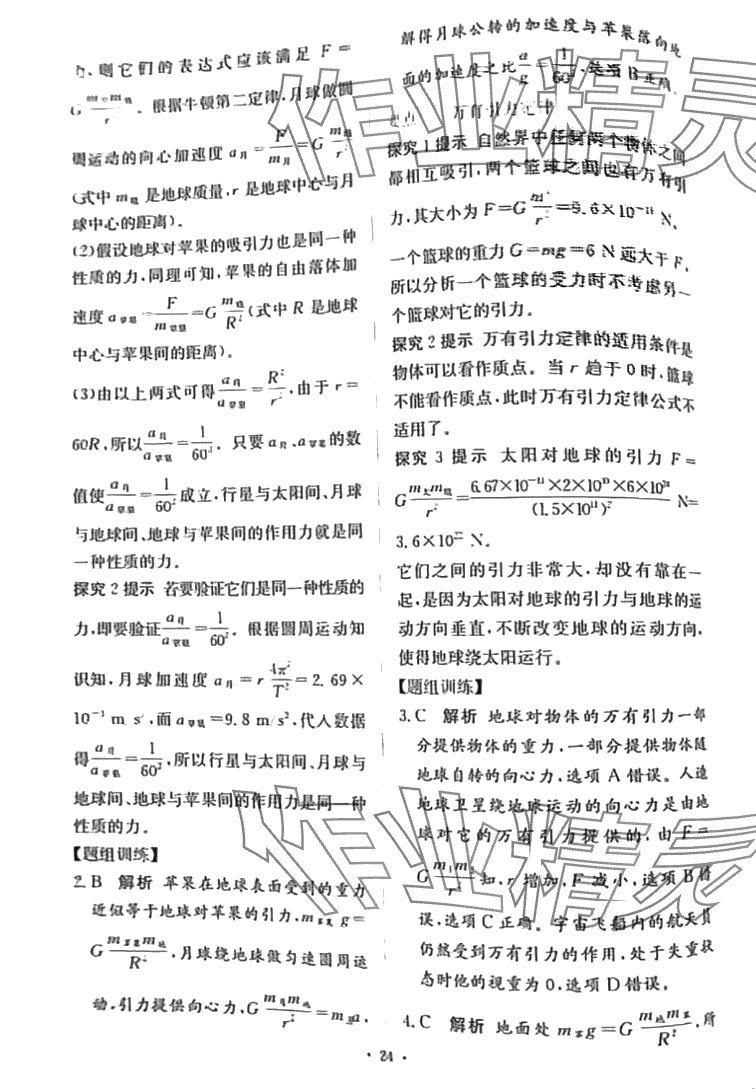 力,则它们的表达式应该满足 F=
G m月m地/r²。根据牛顿第二定律,月球做圆
周运动的向心加速度 a月=F/m月=G m地/r²
(式中 m地是地球质量,r 是地球中心与月
球中心的距离)。
(2)假设地球对苹果的吸引力也是同一种
性质的力,同理可知,苹果的自由落体加
速度 a苹果=F/m苹果=G m地/R²(式中 R 是地球
中心与苹果间的距离)。
(3)由以上两式可得 a月/a苹果=R²/r²,由于 r=
60R,所以 a月/a苹果=1/60²。只要 a月、a苹果的数
值使 a月/a苹果=1/60²成立,行星与太阳间、月球
与地球间、地球与苹果间的作用力就是同
一种性质的力。
探究 2 提示 若要验证它们是同一种性质的
力,即要验证 a月/a苹果=1/60²。根据圆周运动知
识知,月球加速度 a月=r 4π²/T²=2.69×
10⁻³ m/s²,而 a苹果=9.8 m/s²,代入数据
得 a月/a苹果=1/60²,所以行星与太阳间、月球与
地球间、地球与苹果间的作用力是同一种
性质的力。
【题组训练】
2.B 解析 苹果在地球表面受到的重力
近似等于地球对苹果的引力,m苹果g=
G m苹果m地/R²,月球绕地球做匀速圆周运
动,引力提供向心力,G m月m地/r²=m月a,
解得月球公转的加速度与苹果落向地
面的加速度之比 a/g=1/60²,选项 B 正确。
万有引力定律
探究 1 提示 自然界中任何两个物体之间
都相互吸引,两个篮球之间也有万有引
力,其大小为 F=G m²/r²=9.6×10⁻¹¹ N,
一个篮球的重力 G=mg=6 N 远大于 F,
所以分析一个篮球的受力时不考虑另一
个篮球对它的引力。
探究 2 提示 万有引力定律的适用条件是
物体可以看作质点。当 r 趋于 0 时,篮球
不能看作质点,此时万有引力定律公式不
适用了。
探究 3 提示 太阳对地球的引力 F=
G m太m地/r²=6.67×10⁻¹¹×2×10³⁰×6×10²⁴/(1.5×10¹¹)² N=
3.6×10²² N。
它们之间的引力非常大,却没有靠在一
起,是因为太阳对地球的引力与地球的运
动方向垂直,不断改变地球的运动方向,
使得地球绕太阳运行。
【题组训练】
3.C 解析 地球对物体的万有引力一部
分提供物体的重力,一部分提供物体随
地球自转的向心力,选项 A 错误。人造
地球卫星绕地球运动的向心力是由地
球对它的万有引力提供的,由 F=
G m₁m₂/r² 知,r 增加,F 减小,选项 B 错
误,选项 C 正确。宇宙飞船内的航天员
仍然受到万有引力的作用,处于失重状
态时他的视重为 0,选项 D 错误。
4.C 解析 地面处 m苹g=G m地m苹/R²,所
· 24 ·
作业精灵
作业精灵